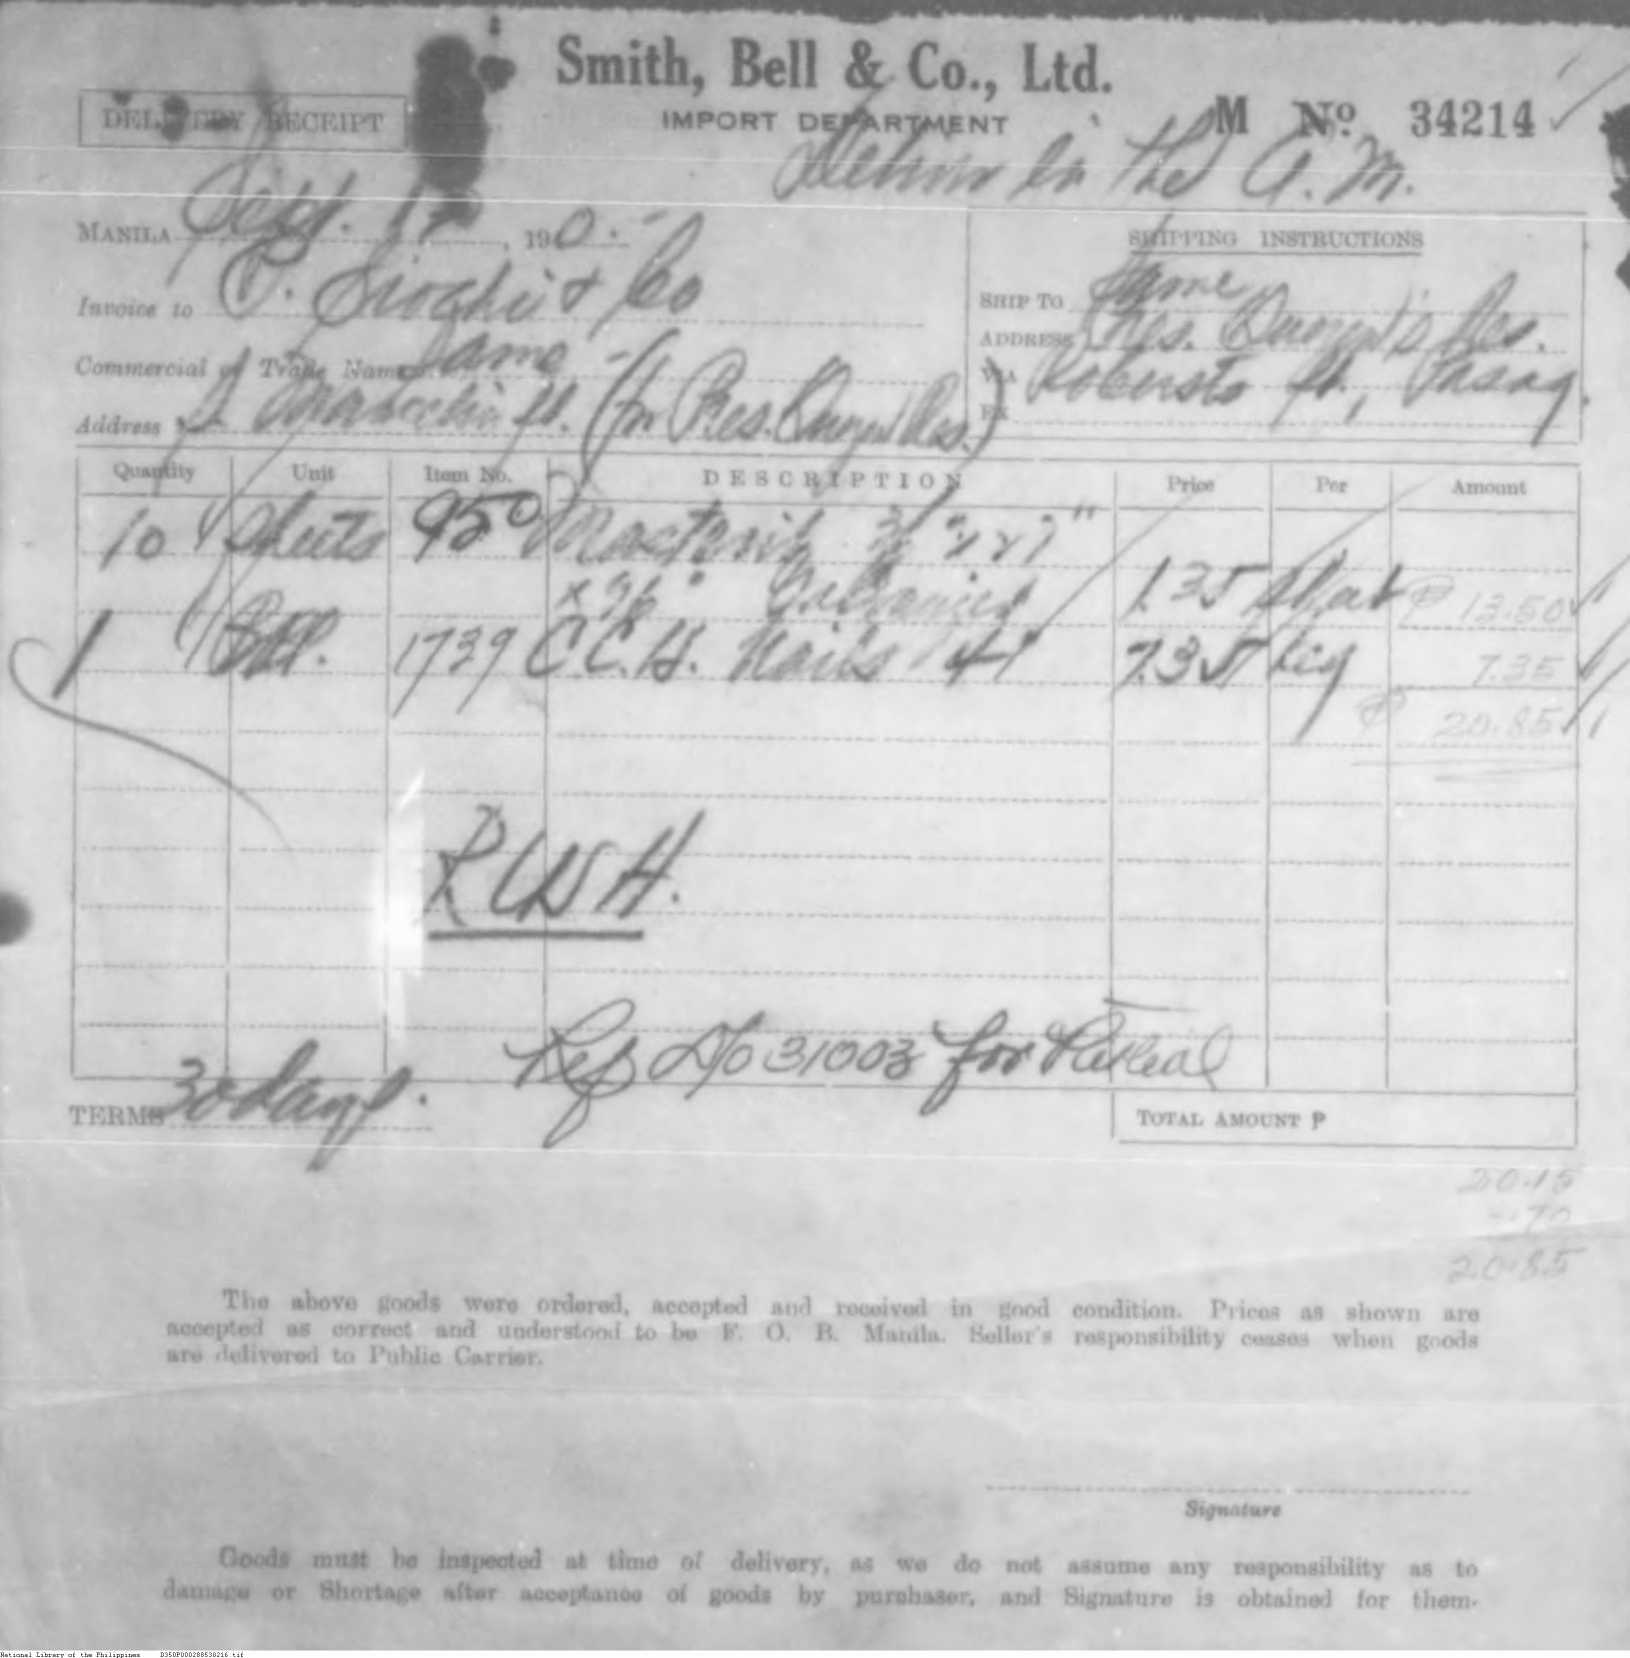 Smith, Bell & Co., Ltd.
DELIVERY RECEIPT
IMPORT DEPARTMENT
M No. 34214
in the A.M.
MANILA Sept. 17, 190
SHIPPING INSTRUCTIONS
Invoice to P. Siochi & Co
SHIP TO Same
ADDRESS Pres. Res.
Commercial or Trade Name Same
VIA Roberts St., Pasay.
Address St. (for Pres. Res.)
EX
Quantity Unit Item No. DESCRIPTION Price Per Amount
10 Sheets 950
x 96" 1.35 Sheet ₱ 13.50
1 1739 C.C.H. Nails 4" 7.35 keg 7.35
₱ 20.85
RUSH.
Ref D/o 31003 for
TERMS 30 days.
TOTAL AMOUNT ₱
20.15
.70
20.85
The above goods were ordered, accepted and received in good condition. Prices as shown are
accepted as correct and understood to be F. O. B. Manila. Seller's responsibility ceases when goods
are delivered to Public Carrier.
Signature
Goods must be inspected at time of delivery, as we do not assume any responsibility as to
damage or Shortage after acceptance of goods by purchaser, and Signature is obtained for them.
National Library of the Philippines D350P000288530216.tif